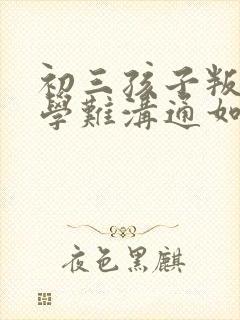 初三孩子叛
學難溝通如
夜色黑麒